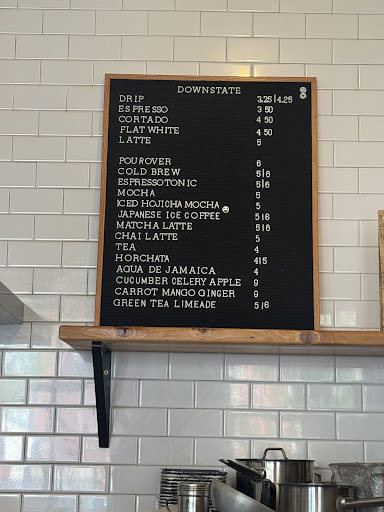 DOWNSTATE
DRIP 3.25|4.25
ESPRESSO 3 50
CORTADO 4 50
FLAT WHITE 4 50
LATTE 5
POUROVER 6
COLD BREW 5|6
ESPRESSOTONIC 5|6
MOCHA 5
ICED HOJICHA MOCHA 5
JAPANESE ICE COFFEE 5|6
MATCHA LATTE 5|6
CHAI LATTE 5
TEA 4
HORCHATA 4|5
AQUA DE JAMAICA 4
CUCUMBER CELERY APPLE 9
CARROT MANGO GINGER 9
GREEN TEA LIMEADE 5|6